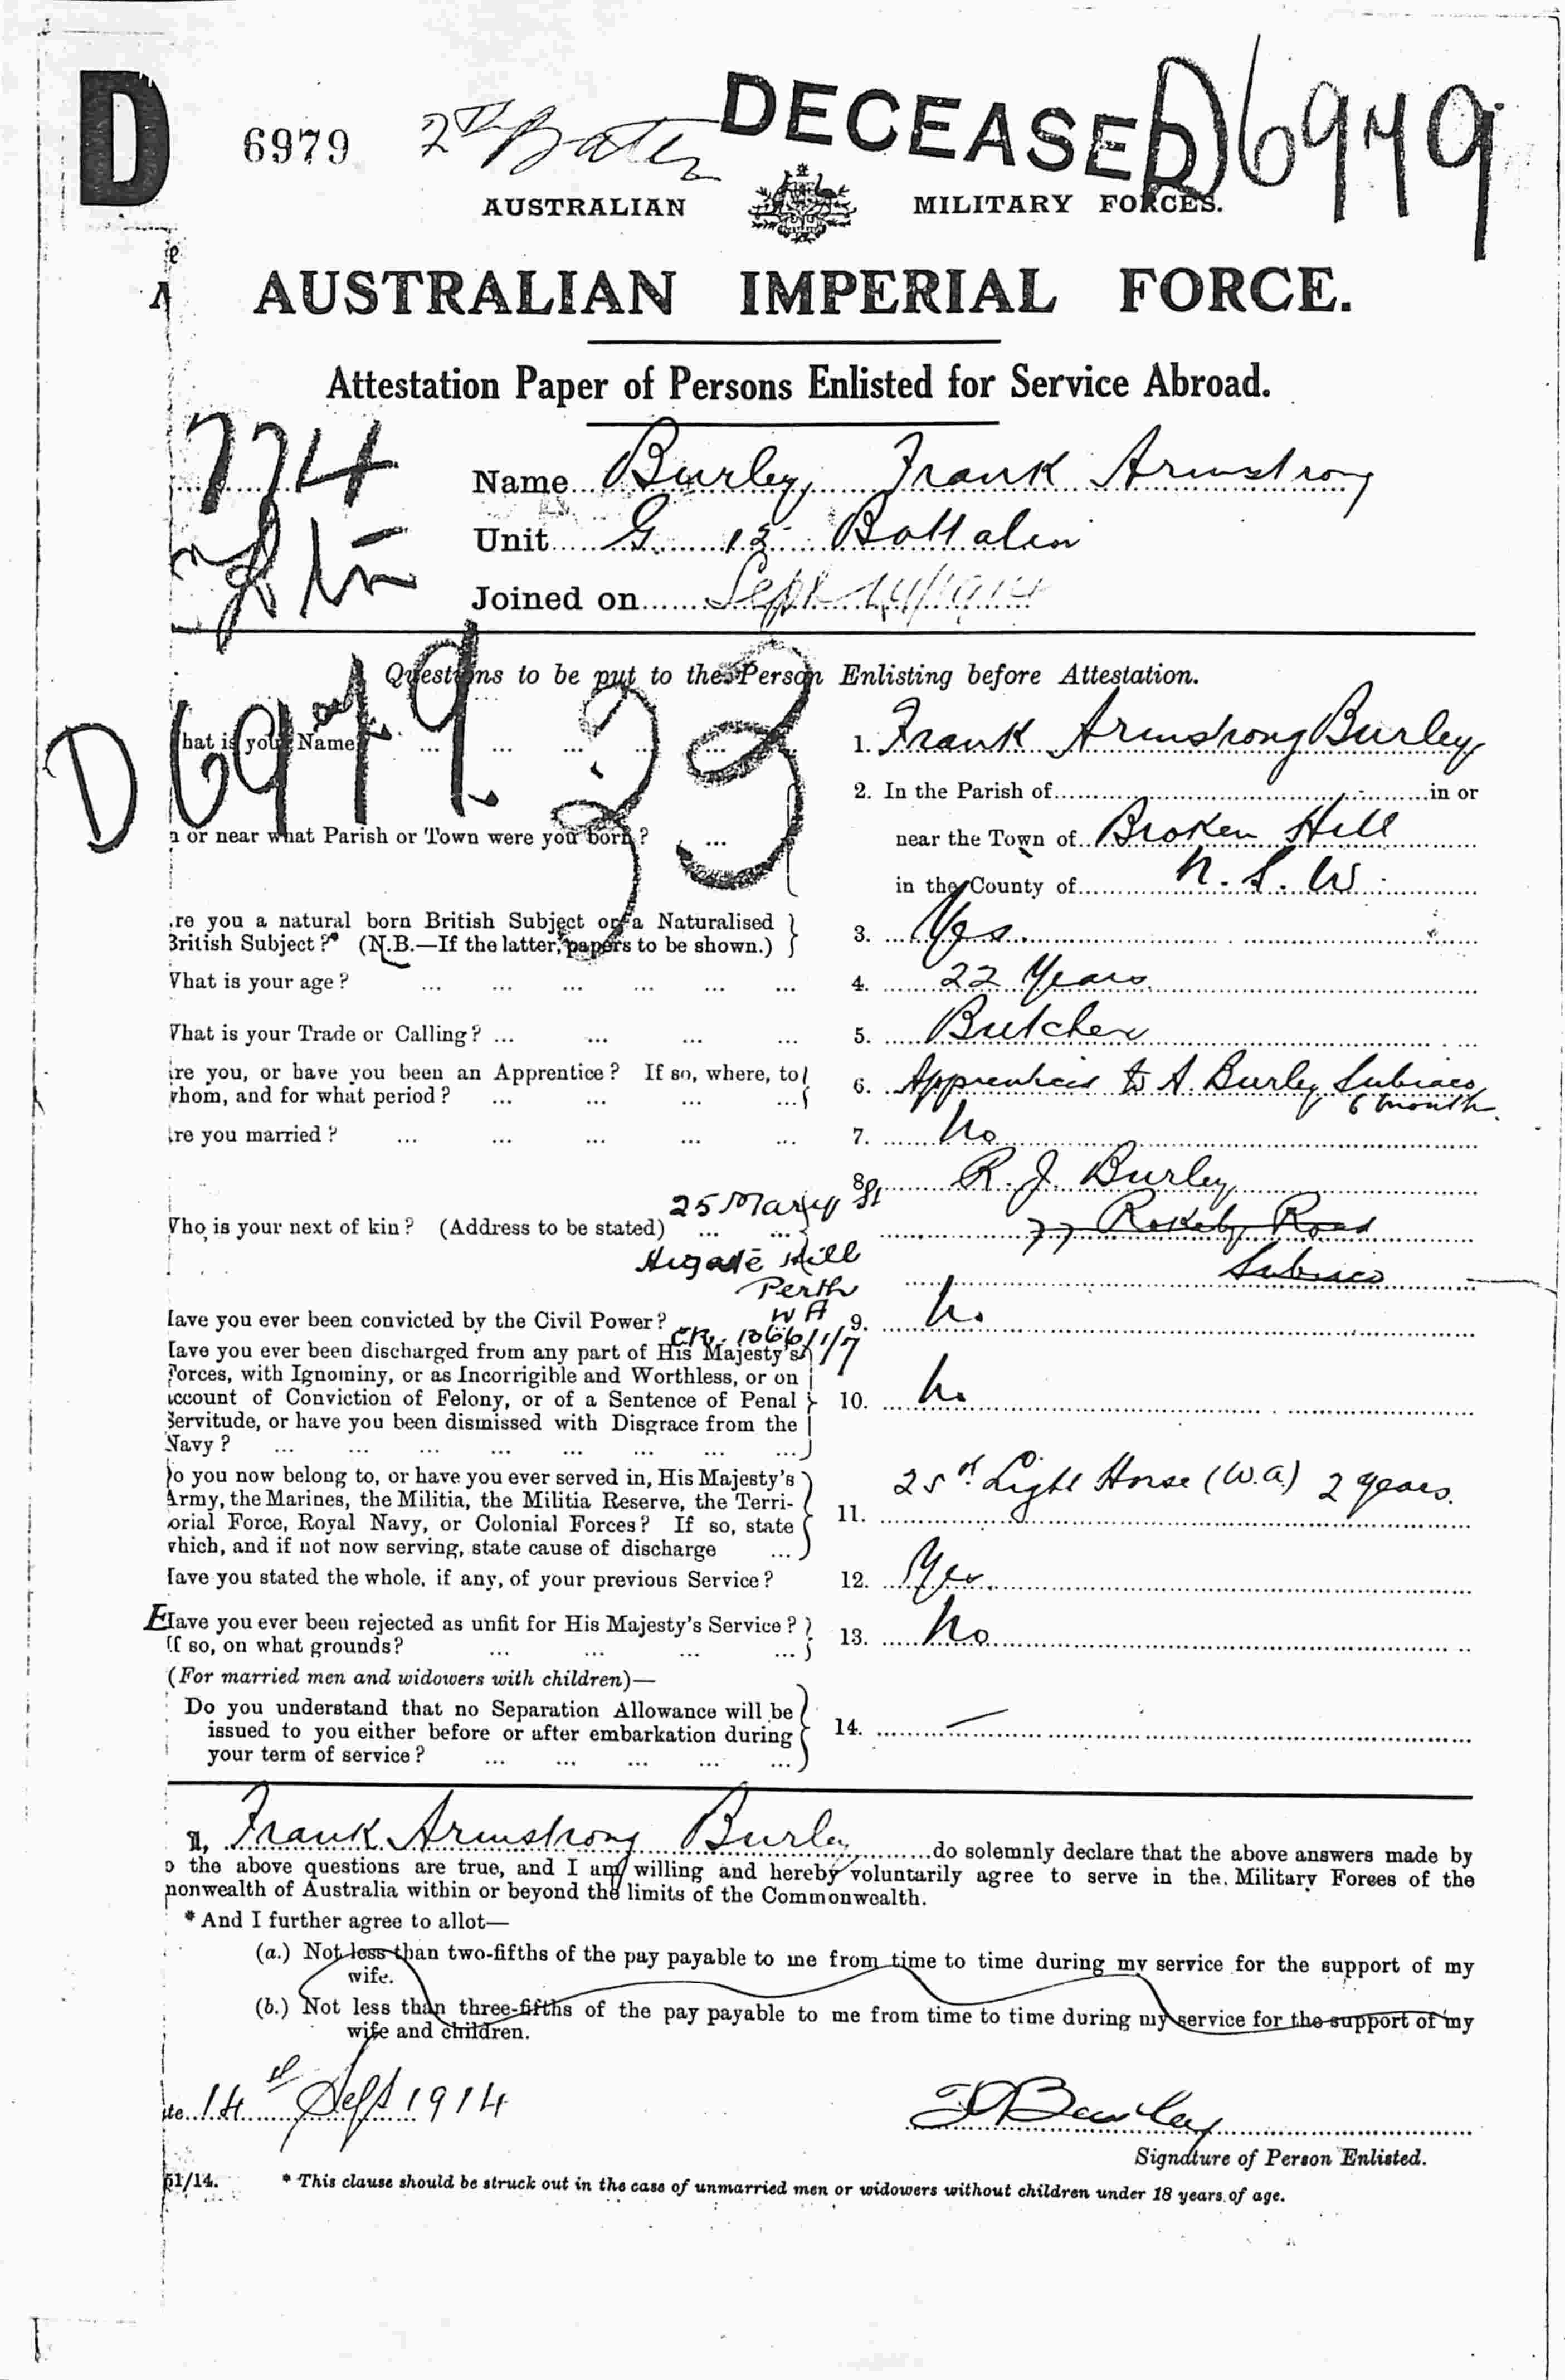 D
6979
DECEASED
D6979
AUSTRALIAN MILITARY FORCES.
AUSTRALIAN IMPERIAL FORCE.
Attestation Paper of Persons Enlisted for Service Abroad.
774
Name Burley, Frank Armstrong
Unit G. 12 Battalion
Joined on Sept 14/1914
Questions to be put to the Person Enlisting before Attestation.
D6979.
33
hat is your Name ... ... ... ... ... 1. Frank Armstrong Burley
2. In the Parish of in or
n or near what Parish or Town were you born? ... near the Town of Broken Hill
in the County of N. S. W.
re you a natural born British Subject or a Naturalised
British Subject?* (N.B.—If the latter, papers to be shown.) 3. Yes.
What is your age? ... ... ... ... ... ... 4. 22 Years
What is your Trade or Calling? ... ... ... ... 5. Butcher
re you, or have you been an Apprentice? If so, where, to
whom, and for what period? ... ... ... ... 6. Apprenticed to A. Burley Subiaco
6 month.
re you married? ... ... ... ... ... 7. No
8. R. J. Burley
25 Mary St
Who is your next of kin? (Address to be stated) ... ... 77 Rokeby Road
Higate Hill
Subiaco
Perth
W A
Have you ever been convicted by the Civil Power? 9. No
CR. 1366/1/7
Have you ever been discharged from any part of His Majesty's
Forces, with Ignominy, or as Incorrigible and Worthless, or on
account of Conviction of Felony, or of a Sentence of Penal 10. No
Servitude, or have you been dismissed with Disgrace from the
Navy? ... ... ... ... ... ... ... ...
Do you now belong to, or have you ever served in, His Majesty's
Army, the Marines, the Militia, the Militia Reserve, the Terri-
orial Force, Royal Navy, or Colonial Forces? If so, state 11. 25th Light Horse (W.A.) 2 years.
which, and if not now serving, state cause of discharge ...
Have you stated the whole, if any, of your previous Service? 12. Yes.
Have you ever been rejected as unfit for His Majesty's Service?
If so, on what grounds? ... ... ... ... 13. No
(For married men and widowers with children)—
Do you understand that no Separation Allowance will be
issued to you either before or after embarkation during 14. —
your term of service? ... ... ... ... ...
I, Frank Armstrong Burley do solemnly declare that the above answers made by
o the above questions are true, and I am willing and hereby voluntarily agree to serve in the Military Forces of the
monwealth of Australia within or beyond the limits of the Commonwealth.
* And I further agree to allot—
(a.) Not less than two-fifths of the pay payable to me from time to time during my service for the support of my
wife.
(b.) Not less than three-fifths of the pay payable to me from time to time during my service for the support of my
wife and children.
te 14th Sept 1914
F A Burley
Signature of Person Enlisted.
51/14. * This clause should be struck out in the case of unmarried men or widowers without children under 18 years of age.